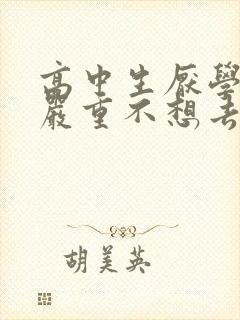 高中生厭學
嚴重不想去
胡美英